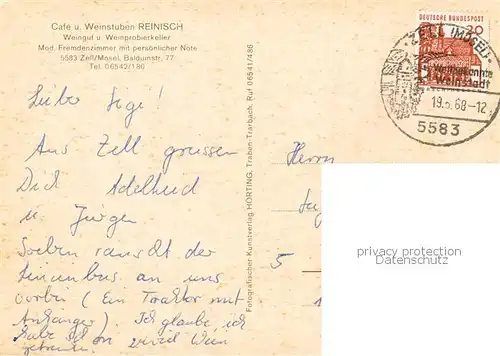 Café u. Weinstuben REINISCH
Weingut u. Weinprobierkeller
Mod. Fremdenzimmer mit persönlicher Note
5583 Zell/Mosel, Balduinstr. 77
Tel. 06542/186
DEUTSCHE BUNDESPOST
20
ZELL (MOSEL)
Weltbekannte
Weinstadt
19.5.68-12
5583
Liebe Sigi!
Aus Zell grussen
Dich Adelheid
u Jürgen
Soeben rauscht der
Linienbus an uns
vorbei (Ein Traktor mit
Anhänger) Ich glaube, ich
habe schon zuviel Wein
getrunken
Fotografischer Kunstverlag HORTING, Traben-Trarbach, Ruf 06541/486
Herrn
5
1
privacy protection
Datenschutz